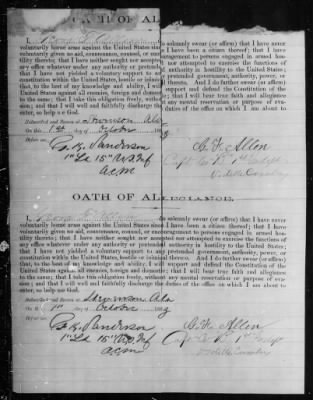 OATH OF AL
do solemnly swear (or affirm) that I have never
voluntarily borne arms against the United States since I have been a citizen thereof; that I have
voluntarily given no aid, countenance, counsel, or encouragement to persons engaged in armed hostility
thereto; that I have neither sought nor accepted nor attempted to exercise the functions of
any office whatever under any authority or pretended authority in hostility to the United States;
that I have not yielded a voluntary support to any pretended government, authority, power, or
constitution within the United States, hostile or inimical thereto. And I do further swear (or affirm)
that, to the best of my knowledge and ability, I will support and defend the Constitution of the
United States against all enemies, foreign and domestic; that I will bear true faith and allegiance
to the same; that I take this obligation freely, without any mental reservation or purpose of evasion;
and that I will well and faithfully discharge the duties of the office on which I am about to
enter, so help me God.
Stevenson Ala
On this 1st day of October
C. F. Allin
G. K. Sanderson
1st Lt 15" U.S. Inf
A.C.M
OATH OF ALLEGIANCE.
do solemnly swear (or affirm) that I have never
voluntarily borne arms against the United States since I have been a citizen thereof; that I have
voluntarily given no aid, countenance, counsel, or encouragement to persons engaged in armed hostility
thereto; that I have neither sought nor accepted nor attempted to exercise the functions of
any office whatever under any authority or pretended authority in hostility to the United States;
that I have not yielded a voluntary support to any pretended government, authority, power, or
constitution within the United States, hostile or inimical thereto. And I do further swear (or affirm)
that, to the best of my knowledge and ability, I will support and defend the Constitution of the
United States against all enemies, foreign and domestic; that I will bear true faith and allegiance to
the same; that I take this obligation freely, without any mental reservation or purpose of evasion;
and that I will well and faithfully discharge the duties of the office on which I am about to
enter, so help me God.
Stevenson Ala
On this 1st day of October 1863
C. F. Allin
G. K. Sanderson
1st Lt 15" U.S. Inf
A.C.M